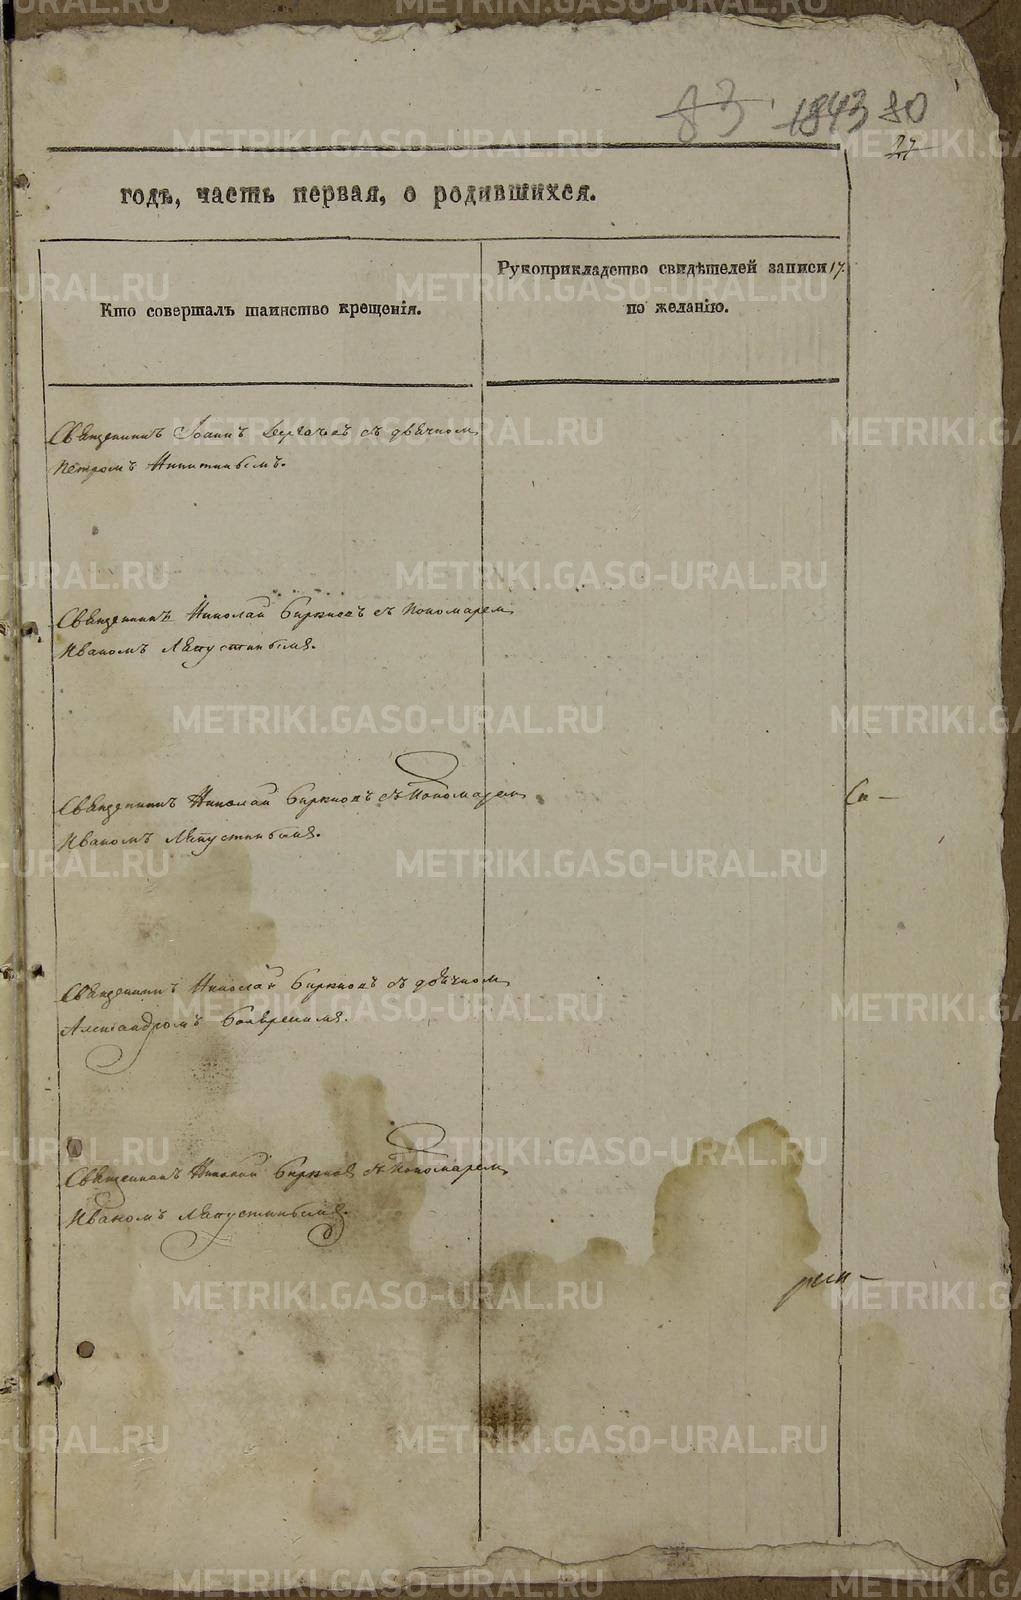 83 1843 80
27
годъ, часть первая, о родившихся.
Кто совершалъ таинство крещенія.
Рукоприкладство свидѣтелей записи 17.
по желанію.
Священникъ Іоаннъ съ дьячкомъ
Петромъ Никитинымъ.
Священникъ Николай Бирюковъ съ Пономаремъ
Иваномъ Ляпустинымъ.
Священникъ Николай Бирюковъ съ Пономаремъ
Иваномъ Ляпустинымъ.
Священникъ Николай Бирюковъ съ дьячкомъ
Александромъ
Священникъ Николай Бирюковъ съ Пономаремъ
Иваномъ Ляпустинымъ.
METRIKI.GASO-URAL.RU